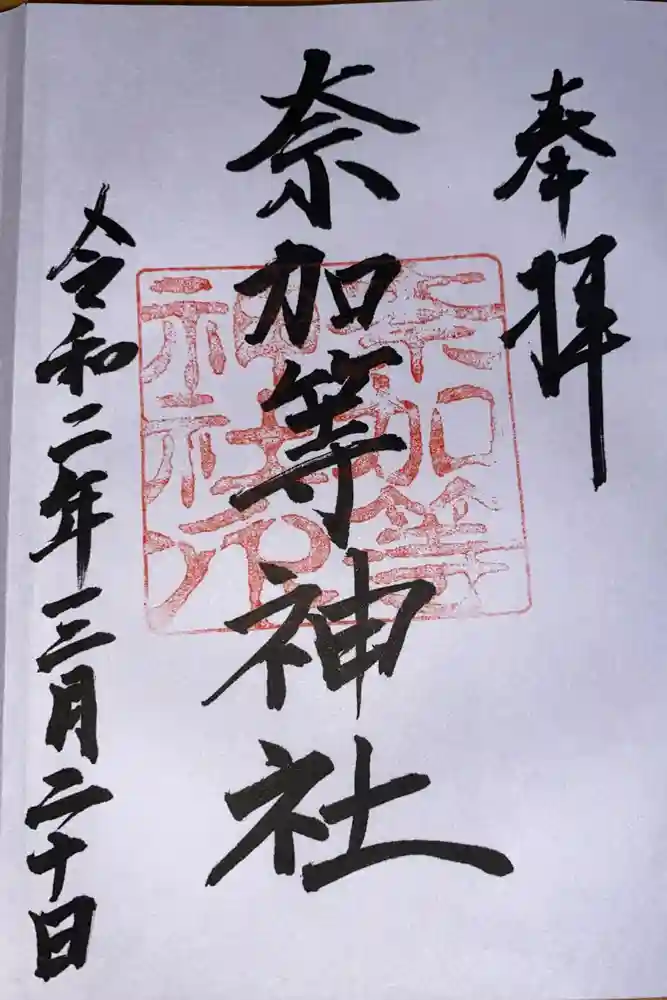 奉拝
奈加等神社
奈加等
神社之印
令和二年三月二十日